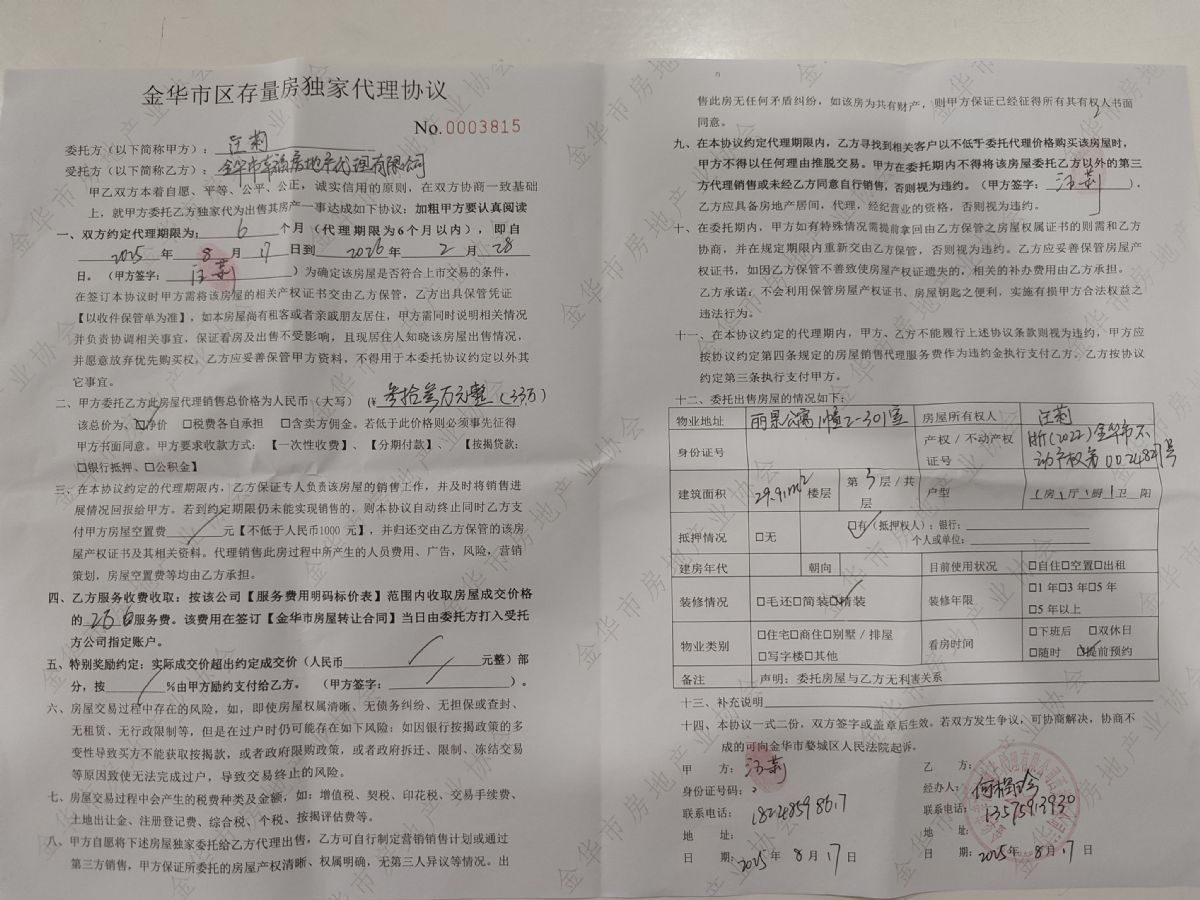 金华市区存量房独家代理协议
No.0003815
委托方（以下简称甲方）：汪莉
受托方（以下简称乙方）：金华市幸福房地产代理有限公司
甲乙双方本着自愿、平等、公平、公正，诚实信用的原则，在双方协商一致基础
上，就甲方委托乙方独家代为出售其房产一事达成如下协议：加粗甲方要认真阅读
一、双方约定代理期限为：6个月（代理期限为6个月以内），即自
2025年8月17日到2026年2月28
日。（甲方签字：汪莉）为确定该房屋是否符合上市交易的条件，
在签订本协议时甲方需将该房屋的相关产权证书交由乙方保管，乙方出具保管凭证
【以收件保管单为准】，如本房屋尚有租客或者亲戚朋友居住，甲方需同时说明相关情况
并负责协调相关事宜，保证看房及出售不受影响，且现居住人知晓该房屋出售情况，
并愿意放弃优先购买权。乙方应妥善保管甲方资料，不得用于本委托协议约定以外其
它事宜。
二、甲方委托乙方此房屋代理销售总价格为人民币（大写）（¥叁拾叁万元整（33万）
该总价为、☑净价 □税费各自承担 □含卖方佣金。若低于此价格则必须事先征得
甲方书面同意。甲方要求收款方式：【一次性收费】、【分期付款】、【按揭贷款：
□银行抵押、□公积金】
三、在本协议约定的代理期限内，乙方保证专人负责该房屋的销售工作，并及时将销售进
展情况回报给甲方。若到约定期限仍未能实现销售的，则本协议自动终止同时乙方支
付甲方房屋空置费／元【不低于人民币1000 元】，并归还交由乙方保管的该房
屋产权证书及其相关资料。代理销售此房过程中所产生的人员费用、广告，风险，营销
策划，房屋空置费等均由乙方承担。
四、乙方服务收费收取：按该公司【服务费用明码标价表】范围内收取房屋成交价格
的服务费。该费用在签订【金华市房屋转让合同】当日由委托方打入受托
方公司指定账户。
五、特别奖励约定：实际成交价超出约定成交价（人民币／元整）部
分，按／%由甲方励约支付给乙方。（甲方签字：／）。
六、房屋交易过程中存在的风险，如，即使房屋权属清晰、无债务纠纷、无担保或查封、
无租赁、无行政限制等，但是在过户时仍可能存在如下风险：如因银行按揭政策的多
变性导致买方不能获取按揭款，或者政府限购政策，或者政府拆迁、限制、冻结交易
等原因致使无法完成过户，导致交易终止的风险。
七、房屋交易过程中会产生的税费种类及金额，如：增值税、契税、印花税、交易手续费、
土地出让金、注册登记费、综合税、个税、按揭评估费等。
八、甲方自愿将下述房屋独家委托给乙方代理出售，乙方可自行制定营销销售计划或通过
第三方销售，甲方保证所委托的房屋产权清晰、权属明确，无第三人异议等情况。出
售此房无任何矛盾纠纷，如该房为共有财产，则甲方保证已经征得所有其有权人书面
同意。
九、在本协议约定代理期限内，乙方寻找到相关客户以不低于委托代理价格购买该房屋时，
甲方不得以任何理由推脱交易。甲方在委托期内不得将该房屋委托乙方以外的第三
方代理销售或未经乙方同意自行销售，否则视为违约。（甲方签字：汪莉）.
乙方应具备房地产居间，代理，经纪营业的资格，否则视为违约。
十、在委托期内，甲方如有特殊情况需提前拿回由乙方保管之房屋权属证书的则需和乙方
协商，并在规定期限内重新交由乙方保管，否则视为违约。乙方应妥善保管房屋产
权证书，如因乙方保管不善致使房屋产权证遗失的，相关的补办费用由乙方承担。
乙方承诺：不会利用保管房屋产权证书、房屋钥匙之便利，实施有损甲方合法权益之
违法行为。
十一、在本协议约定的代理期内，甲方、乙方不能履行上述协议条款则视为违约，甲方应
按协议约定第四条规定的房屋销售代理服务费作为违约金执行支付乙方，乙方按协议
约定第三条执行支付甲方。
十二、委托出售房屋的情况如下：
物业地址 丽景公寓1幢2-301室 房屋所有权人 汪莉
身份证号 产权 / 不动产权证号 浙(2022)金华市不动产权第0024827号
建筑面积 29.91m² 楼层 第3层 / 共层 户型 1房1厅1厨1卫阳
抵押情况 □无 ☑有（抵押权人）：银行：
个人或单位：
建房年代 朝向 目前使用状况 □自住□空置□出租
装修情况 □毛还□简装☑精装 装修年限 □1 年□3 年□5 年
□5 年以上
物业类别 □住宅□商住□别墅 / 排屋
□写字楼□其他 看房时间 □下班后 □双休日
□随时 ☑提前预约
备注 声明：委托房屋与乙方无利害关系
十三、补充说明
十四、本协议一式二份，双方签字或盖章后生效。若双方发生争议，可协商解决，协商不
成的可向金华市婺城区人民法院起诉。
甲 方：汪莉
身份证号码：
联系电话：18248598617
地 址：
日 期：2025年8月17日
乙 方：
经办人：
联系电话：13575913930
地 址：
日 期：2025年8月17日